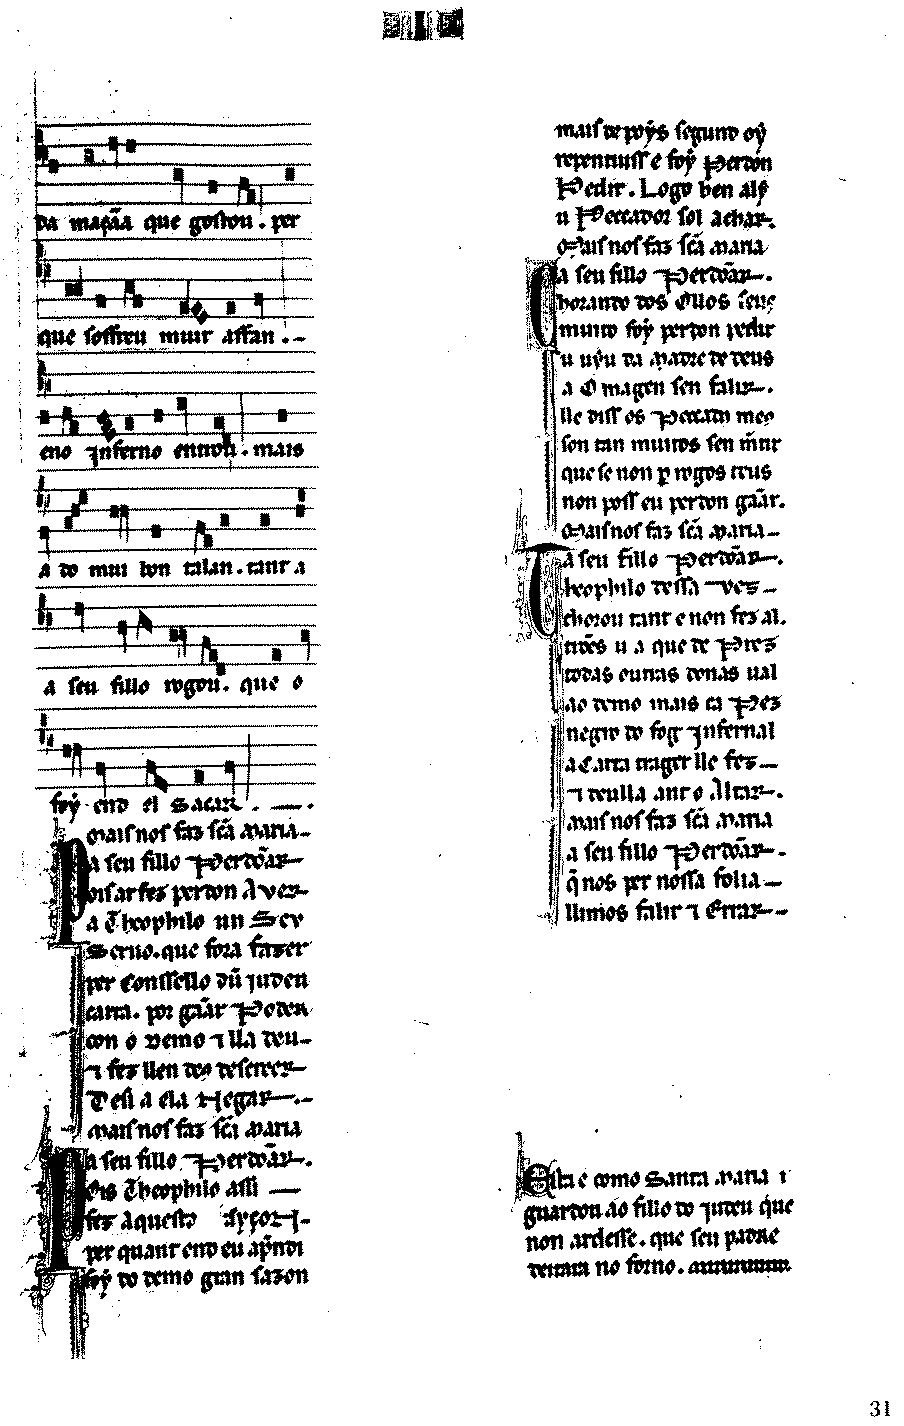 da maçãa que gostou. per
que soffreu muit affan. -
eno jnferno entrou. mais
a do mui bon talan. tant a
a seu fillo rogou. que o
foỹ end el Sacar. -.
Mais nos faz sc̃a Maria-
a seu fillo Perdõar-
Pois ar fez perdon Aver-
a Theophilo un Seu
Seruo. que fora fazer
per Conssello dũ judeu
carta. por gãar Poder
con o Demo ⁊ lla deu-
⁊ fez llen dos descreer-
Desi a ela Negar-.-
Mais nos faz sc̃a Maria
a seu fillo Perdõar-.
Pois Theophilo assi -
fez aquesta
per quant end eu ap̃ndi
foỹ do demo gran sazon
mais depoỹs segund oỹ
repentiuss e foỹ Perdon
Pedir. Logo ben alỹ
u Peccador sol achar.
Mais nos faz sc̃a Maria
a seu fillo Perdõar-.
Chorando dos Ollos seus
muito foỹ perdon pedir
u uyu da Madre de deus
a Omagen sen falir-.
lle diss os Peccad meo
son tan muitos sen m̃tir
que se non p̱ rogos teus
non poss eu perdon gãar.
Mais nos faz sc̃a Maria-
a seu fillo Perdõar-.
Theophilo dessa vez-
chorou tant e non fez al.
trões u a que de Prez
todas outras donas ual
ao demo mais ca Pez
negro do fog jnfernal
a Carta trager lle fez-
⁊ deulla ant o Altar-.
Mais nos faz sc̃a Maria
a seu fillo Perdõar-.
q̃ nos per nossa folia-
llimos falir ⁊ Errar-
Esta e como Santa Maria
guardou ao fillo do judeu que
non ardesse. que seu padre
deitara no forno.
31